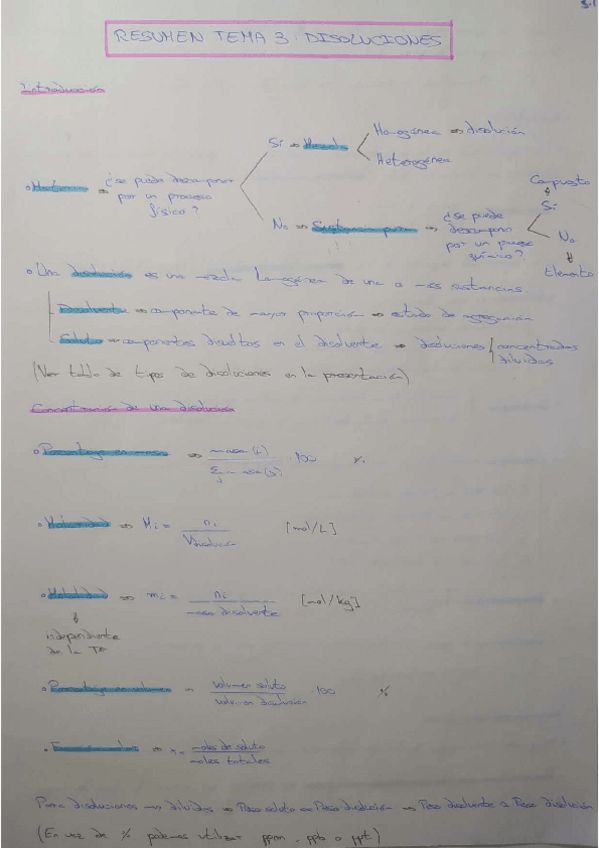 3.1
RESUMEN TEMA 3: DISOLUCIONES
Introducción
Homogénea ⇒ disolución
Sí ⇒ Mezcla
Heterogénea
• Materia ⇒ ¿se puede descomponer por un proceso físico?
No ⇒ Sustancia pura ⇒ ¿se puede descomponer por un proceso químico?
Compuesto
Sí
No
Elemento
• Una disolución es una mezcla homogénea de una o más sustancias.
Disolvente ⇒ componente de mayor proporción ⇒ estado de agregación
Soluto ⇒ componentes disueltos en el disolvente ⇒ disoluciones concentradas
diluidas
(Ver tabla de tipos de disoluciones en la presentación)
Concentración de una disolución
• Porcentaje en masa ⇒ masa (i) / Σj masa (j) · 100 %
• Molaridad ⇒ Mi = ni / Vdisolución [mol/L]
• Molalidad ⇒ mi = ni / masa disolvente [mol/kg]
independiente
de la Tª
• Porcentaje en volumen = volumen soluto / volumen disolución · 100 %
• Fracción molar ⇒ x = moles de soluto / moles totales
Para disoluciones diluidas ⇒ Peso disolvente ≈ Peso disolución
(En vez de % podemos utilizar ppm, ppb o ppt)